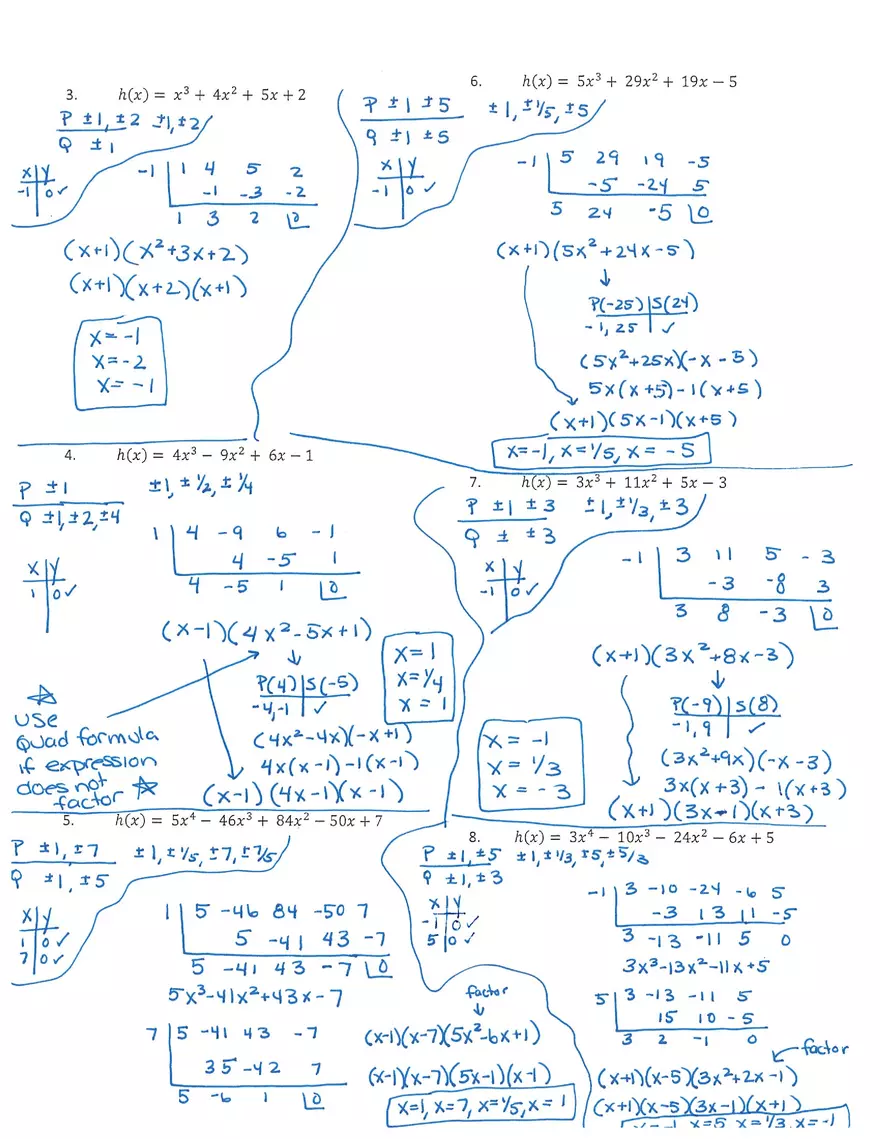 3. h(x) = x³ + 4x² + 5x + 2
P ±1, ±2 ±1, ±2
Q ±1
x | y
-1 | 0 ✓
-1 | 1 4 5 2
-1 -3 -2
1 3 2 |0
(x+1)(x²+3x+2)
(x+1)(x+2)(x+1)
x = -1
x = -2
x = -1
6. h(x) = 5x³ + 29x² + 19x − 5
P ±1 ±5 ±1, ±1/5, ±5
Q ±1 ±5
x | y
-1 | 0 ✓
-1 | 5 29 19 -5
-5 -24 5
5 24 -5 |0
(x+1)(5x²+24x-5)
↓
P(-25) | S(24)
-1, 25 | ✓
(5x²+25x)(-x-5)
5x(x+5)-1(x+5)
(x+1)(5x-1)(x+5)
x=-1, x=1/5, x=-5
4. h(x) = 4x³ − 9x² + 6x − 1
P ±1 ±1, ±1/2, ±1/4
Q ±1, ±2, ±4
x | y
1 | 0 ✓
1 | 4 -9 6 -1
4 -5 1
4 -5 1 |0
(x-1)(4x²-5x+1)
↓
P(4) | S(-5)
-4, -1 | ✓
(4x²-4x)(-x+1)
4x(x-1)-1(x-1)
(x-1)(4x-1)(x-1)
x=1
x=1/4
x=1
☆
USE
Quad formula
if expression
does not
factor ☆
7. h(x) = 3x³ + 11x² + 5x − 3
P ±1 ±3 ±1, ±1/3, ±3
Q ± ±3
x | y
-1 | 0 ✓
-1 | 3 11 5 -3
-3 -8 3
3 8 -3 |0
(x+1)(3x²+8x-3)
↓
P(-9) | S(8)
-1, 9 | ✓
(3x²+9x)(-x-3)
3x(x+3) - 1(x+3)
(x+1)(3x-1)(x+3)
x = -1
x = 1/3
x = -3
5. h(x) = 5x⁴ − 46x³ + 84x² − 50x + 7
P ±1, ±7 ±1, ±1/5, ±7, ±7/5
Q ±1, ±5
x | y
1 | 0 ✓
7 | 0 ✓
1 | 5 -46 84 -50 7
5 -41 43 -7
5 -41 43 -7 |0
5x³-41x²+43x-7
7 | 5 -41 43 -7
35 -42 7
5 -6 1 |0
factor
↓
(x-1)(x-7)(5x²-6x+1)
(x-1)(x-7)(5x-1)(x-1)
x=1, x=7, x=1/5, x=1
8. h(x) = 3x⁴ − 10x³ − 24x² − 6x + 5
P ±1, ±5 ±1, ±1/3, ±5, ±5/3
Q ±1, ±3
x | y
-1 | 0 ✓
5 | 0 ✓
-1 | 3 -10 -24 -6 5
-3 13 11 -5
3 -13 -11 5 0
3x³-13x²-11x+5
5 | 3 -13 -11 5
15 10 -5
3 2 -1 0
factor
(x+1)(x-5)(3x²+2x-1)
(x+1)(x-5)(3x-1)(x+1)
x=-1, x=5, x=1/3, x=-1